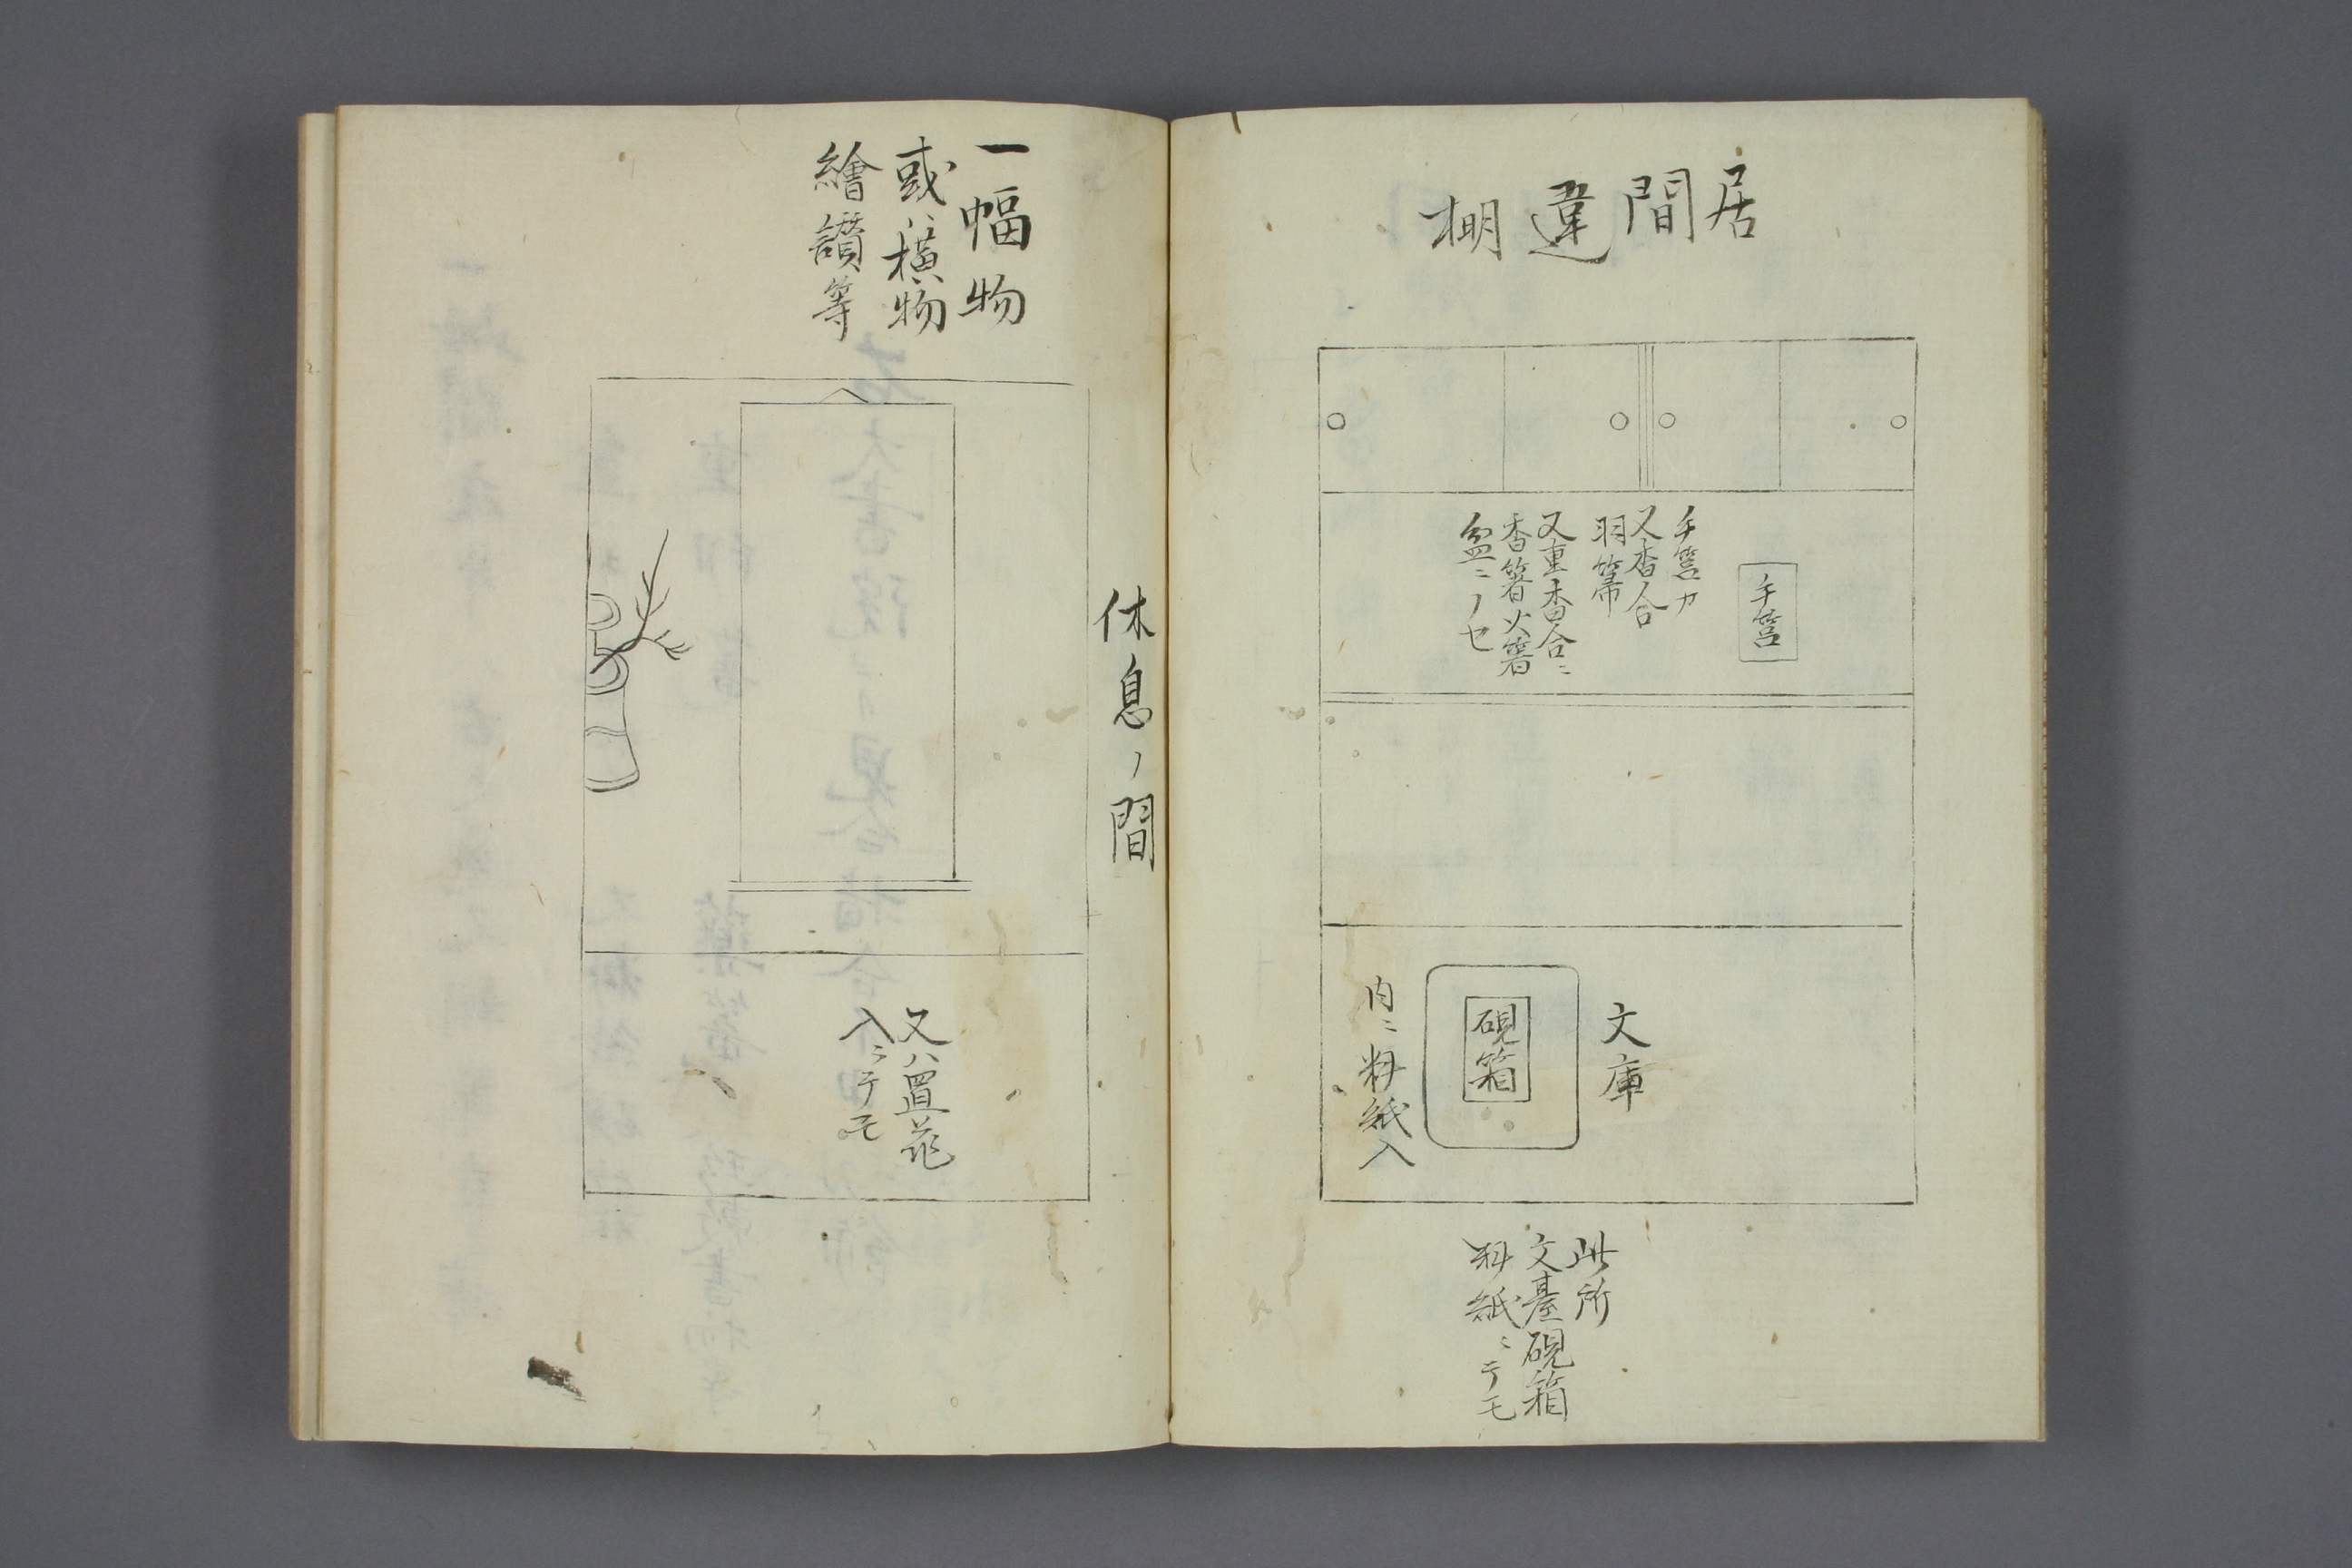 居間違棚
手筥
手筥カ
又香合
羽箒
又重香合ニ
香箸火箸
盆ニノセ
文庫
硯箱
内ニ料紙入
此所
文臺硯箱
料紙ニテモ
休息ノ間
一幅物
或ハ横物
繪讃等
又ハ置花
入ニテモ